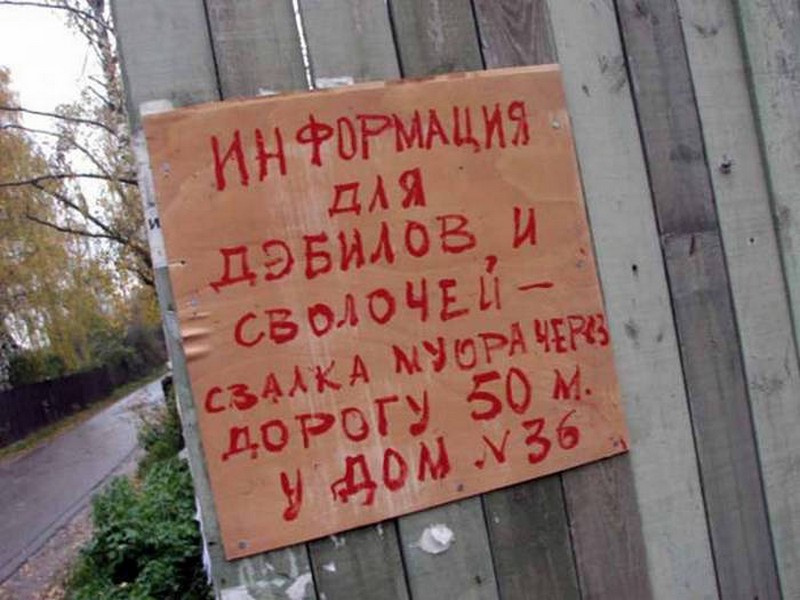 ИНФОРМАЦИЯ
ДЛЯ
ДЭБИЛОВ, И
СВОЛОЧЕЙ -
СВАЛКА МУОРА ЧЕРЕЗ
ДОРОГУ 50 М.
У ДОМ N 36